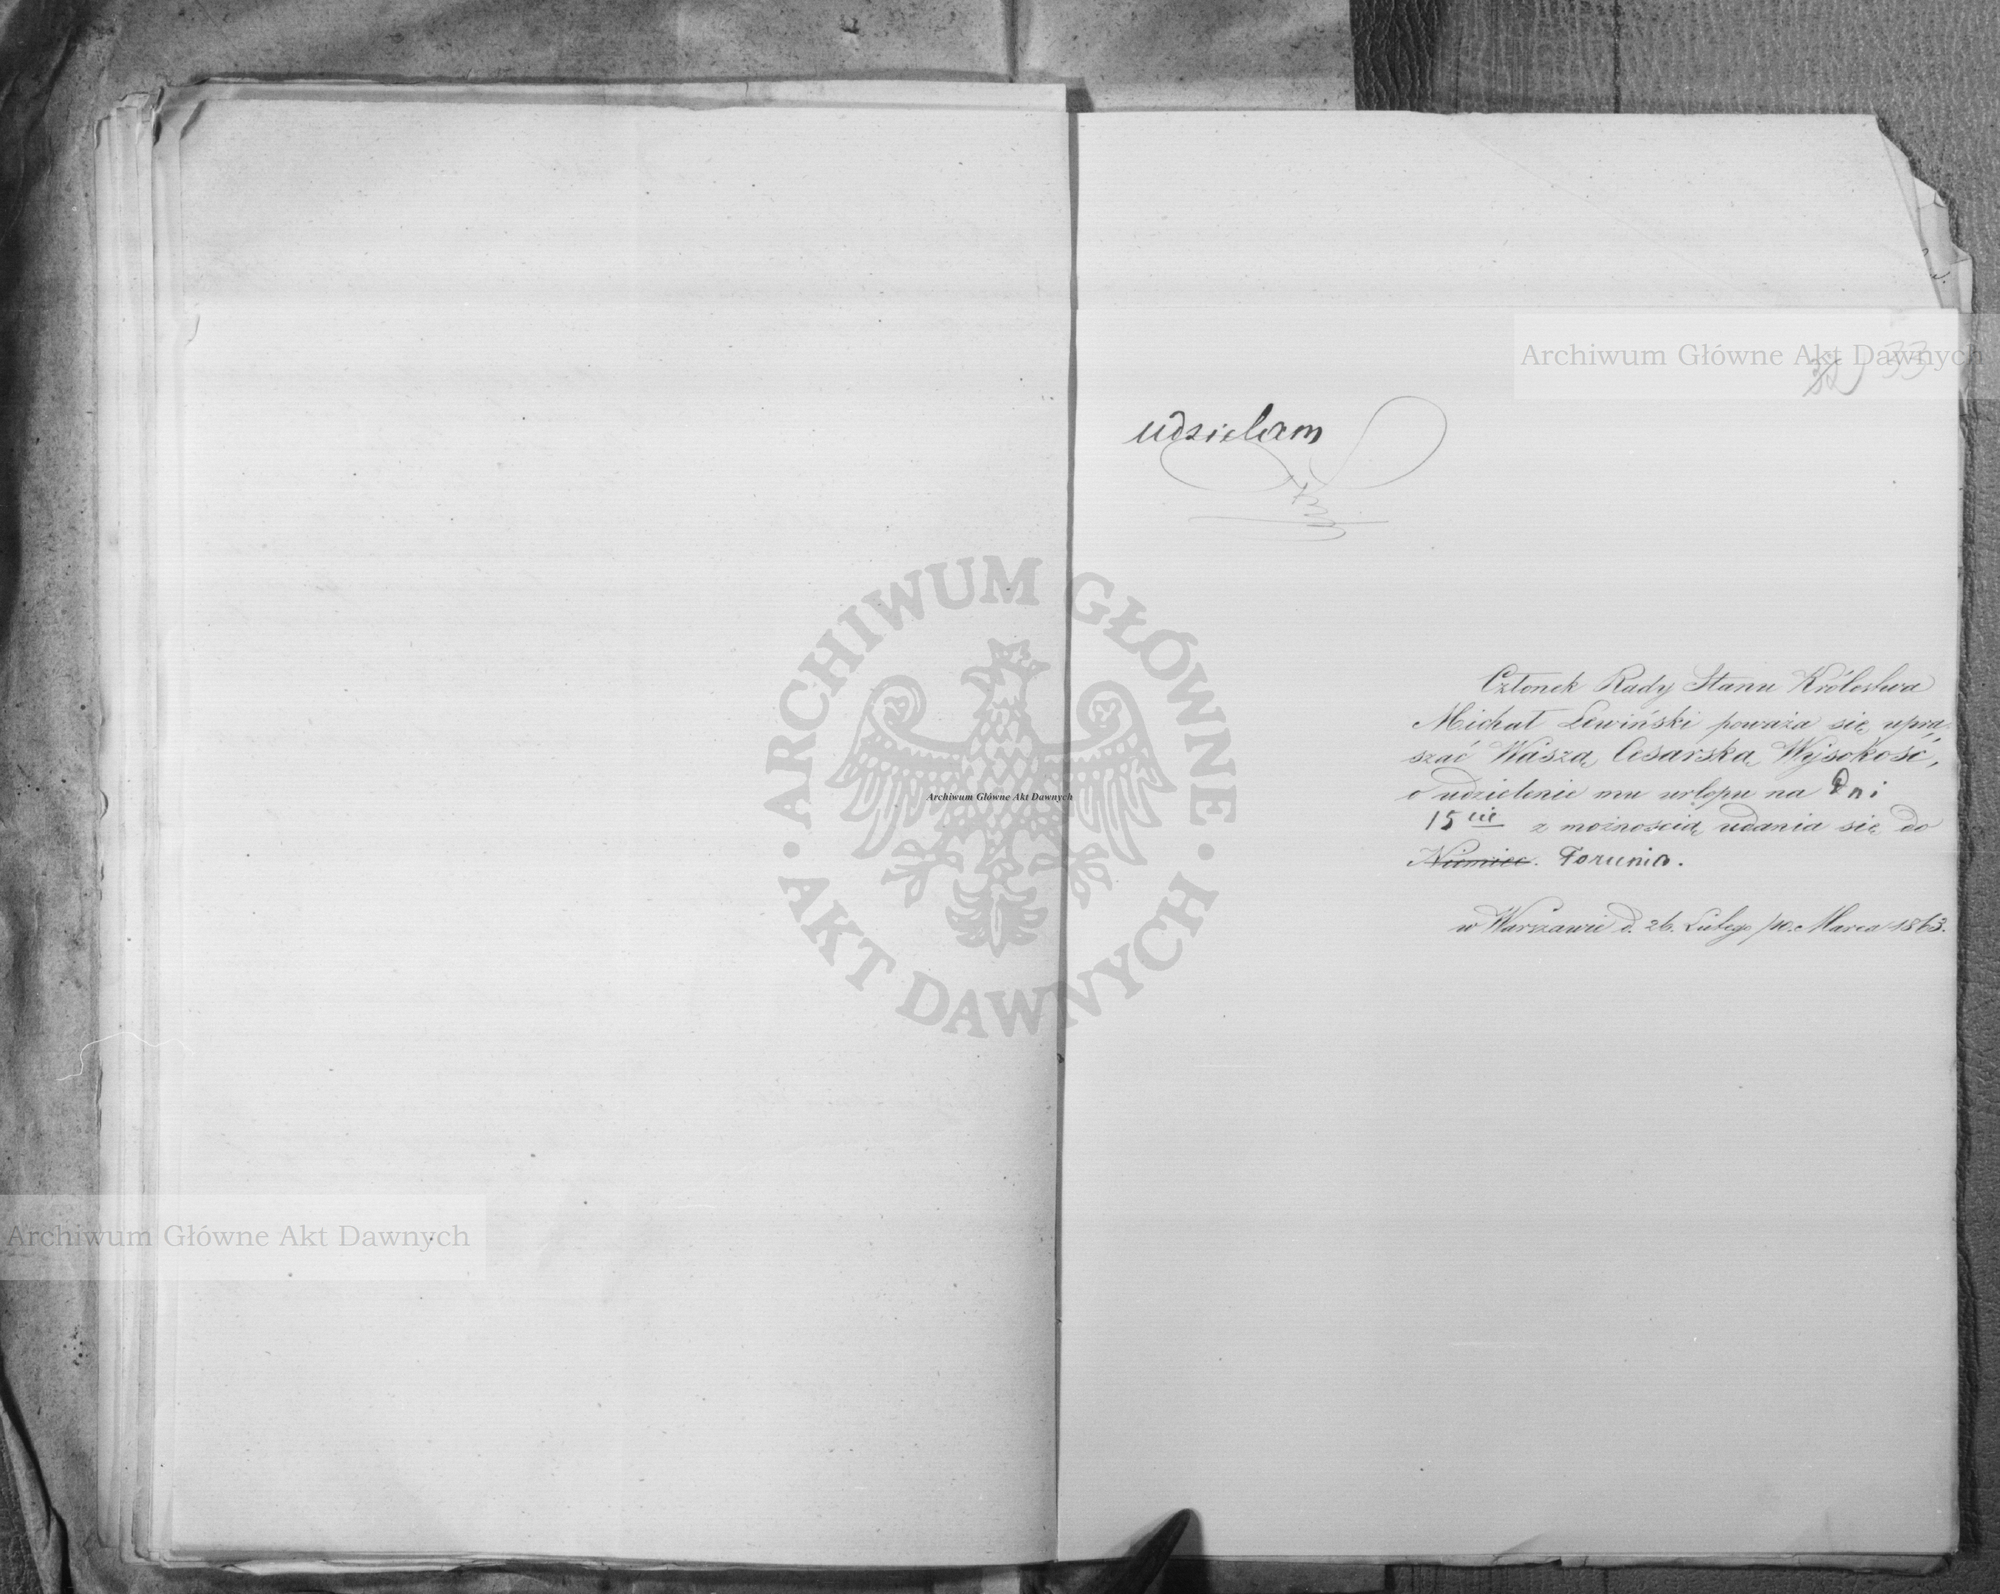 Archiwum Główne Akt Dawnych
32 33
udzielam
ARCHIWUM GŁÓWNE
AKT DAWNYCH
Archiwum Główne Akt Dawnych
Członek Rady Stanu Królestwa
Michał Lewiński poważa się upra-
szać Waszą Cesarską Wysokość,
o udzielenie mu urlopu na Dni
15cie z możnością udania się do
Niemiec. Torunia.
w Warszawie d. 26. Lutego /10. Marca 1863.
Archiwum Główne Akt Dawnych